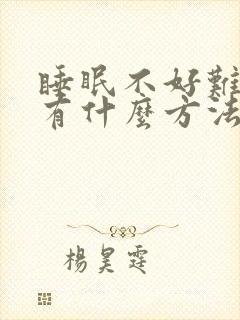 睡眠不好難
有什麼方法
楊昊霆